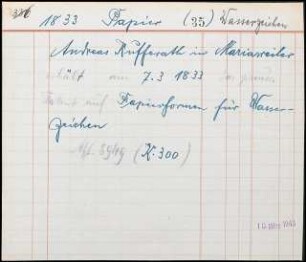 1833 Papier (35) Wasserzeichen
Andreas Rufferath in Mariaweiler
erhält am 7.3 1833
Patent auf Papierformen für Wasser-
zeichen
(K. 300)